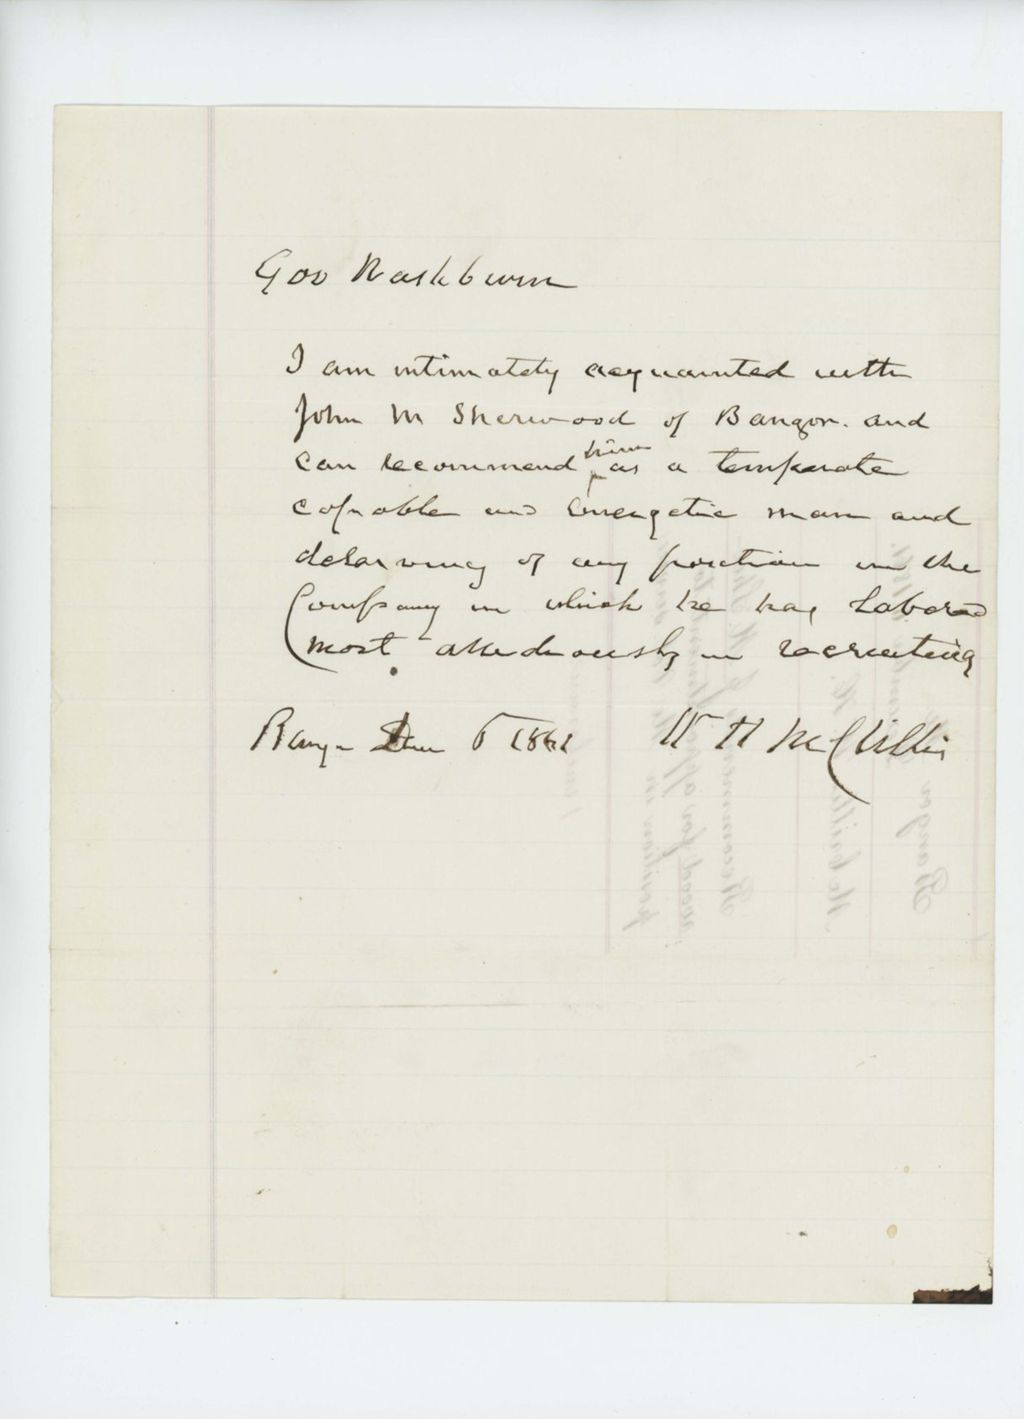 Gov Washburn
I am intimately acquainted with
John M Sherwood of Bangor. and
can recommend him as a temperate
capable and energetic man and
deserving of any position in the
Company in which he has labored
most assiduously in recruiting
Bangor 6 1861 W H McCrillis